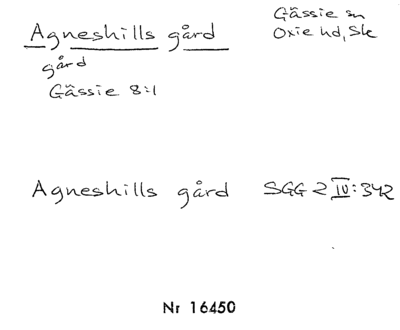 Agneshills gård
Gässie sn
Oxie hd, Sk
gård
Gässie 8:1
Agneshills gård SGG 2 IV:342
Nr 16450